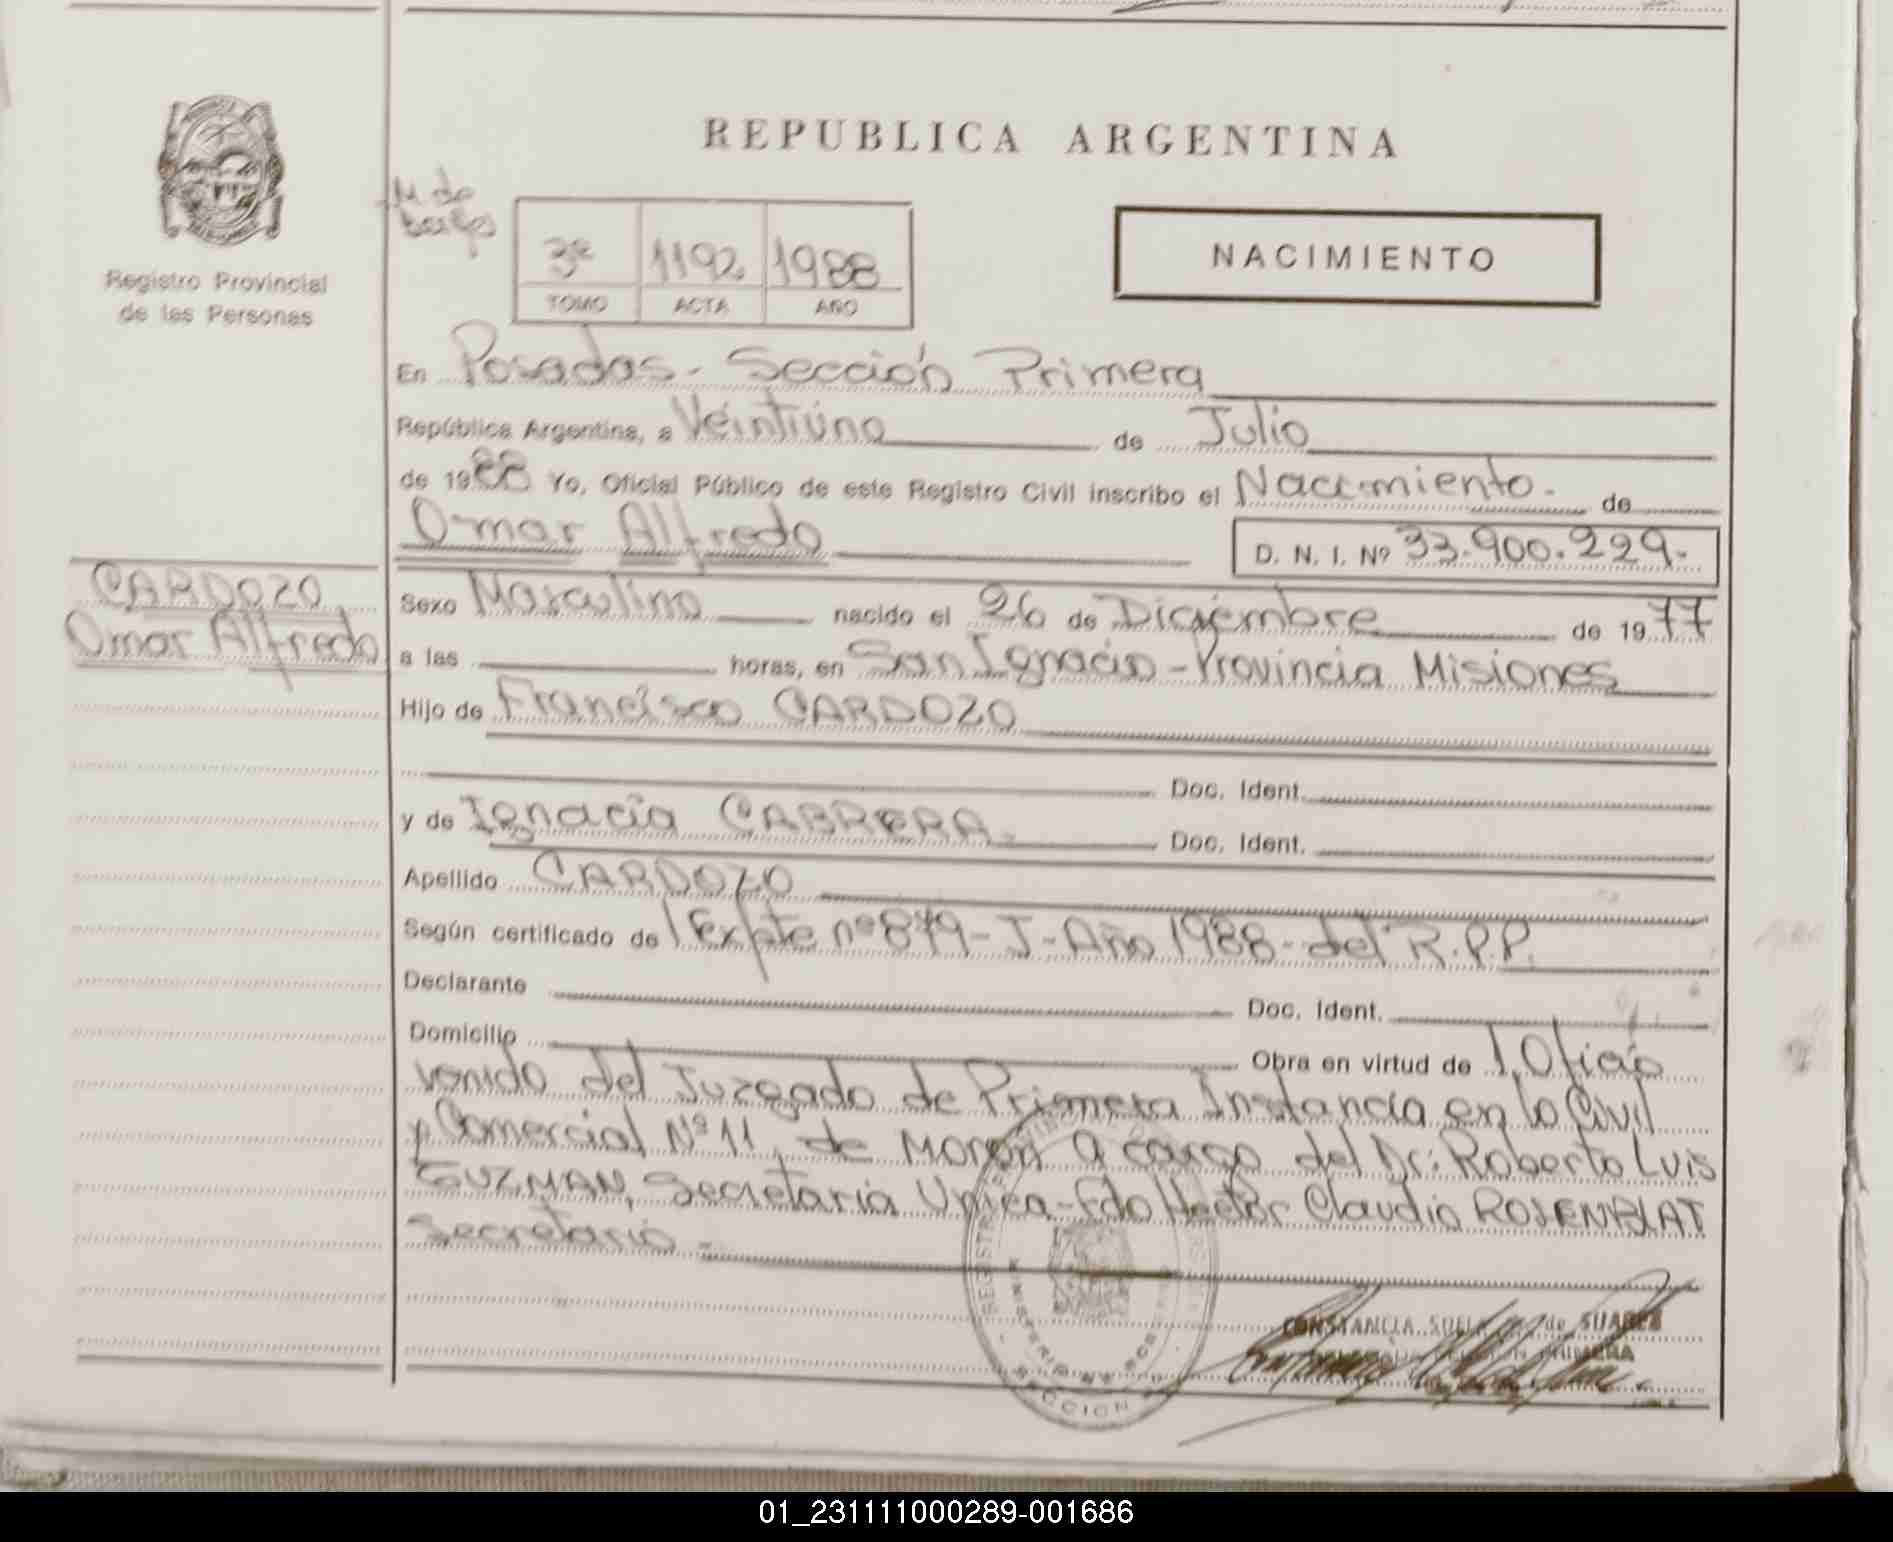 REPUBLICA ARGENTINA
Registro Provincial
de las Personas
M de
3º 1192 1988
TOMO ACTA AÑO
NACIMIENTO
En Posadas - Sección Primera
República Argentina, a Veintiuno de Julio
de 1988 Yo, Oficial Público de este Registro Civil inscribo el Nacimiento - de
Omar Alfredo
D. N. I. Nº 33.900.229.-
CARDOZO
Omar Alfredo
Sexo Masculino nacido el 26 de Diciembre de 1977
a las horas, en San Ignacio - Provincia Misiones
Hijo de Francisco CARDOZO
Doc. Ident.
y de Ignacia CABRERA.- Doc. Ident.
Apellido CARDOZO
Según certificado de Expte nº 879 - J - Año 1988 - del R.P.P.
Declarante Doc. Ident.
Domicilio Obra en virtud de Oficio
venido del Juzgado de Primera Instancia en lo Civil
y Comercial Nº 11, de Moron a cargo del Dr: Roberto Luis
GUZMAN, Secretaria Unica - Fdo Hector Claudio ROSENBLAT
Secretario -
CONSTANCIA de SUAREZ
PRIMERA
SECCION
01_231111000289-001686